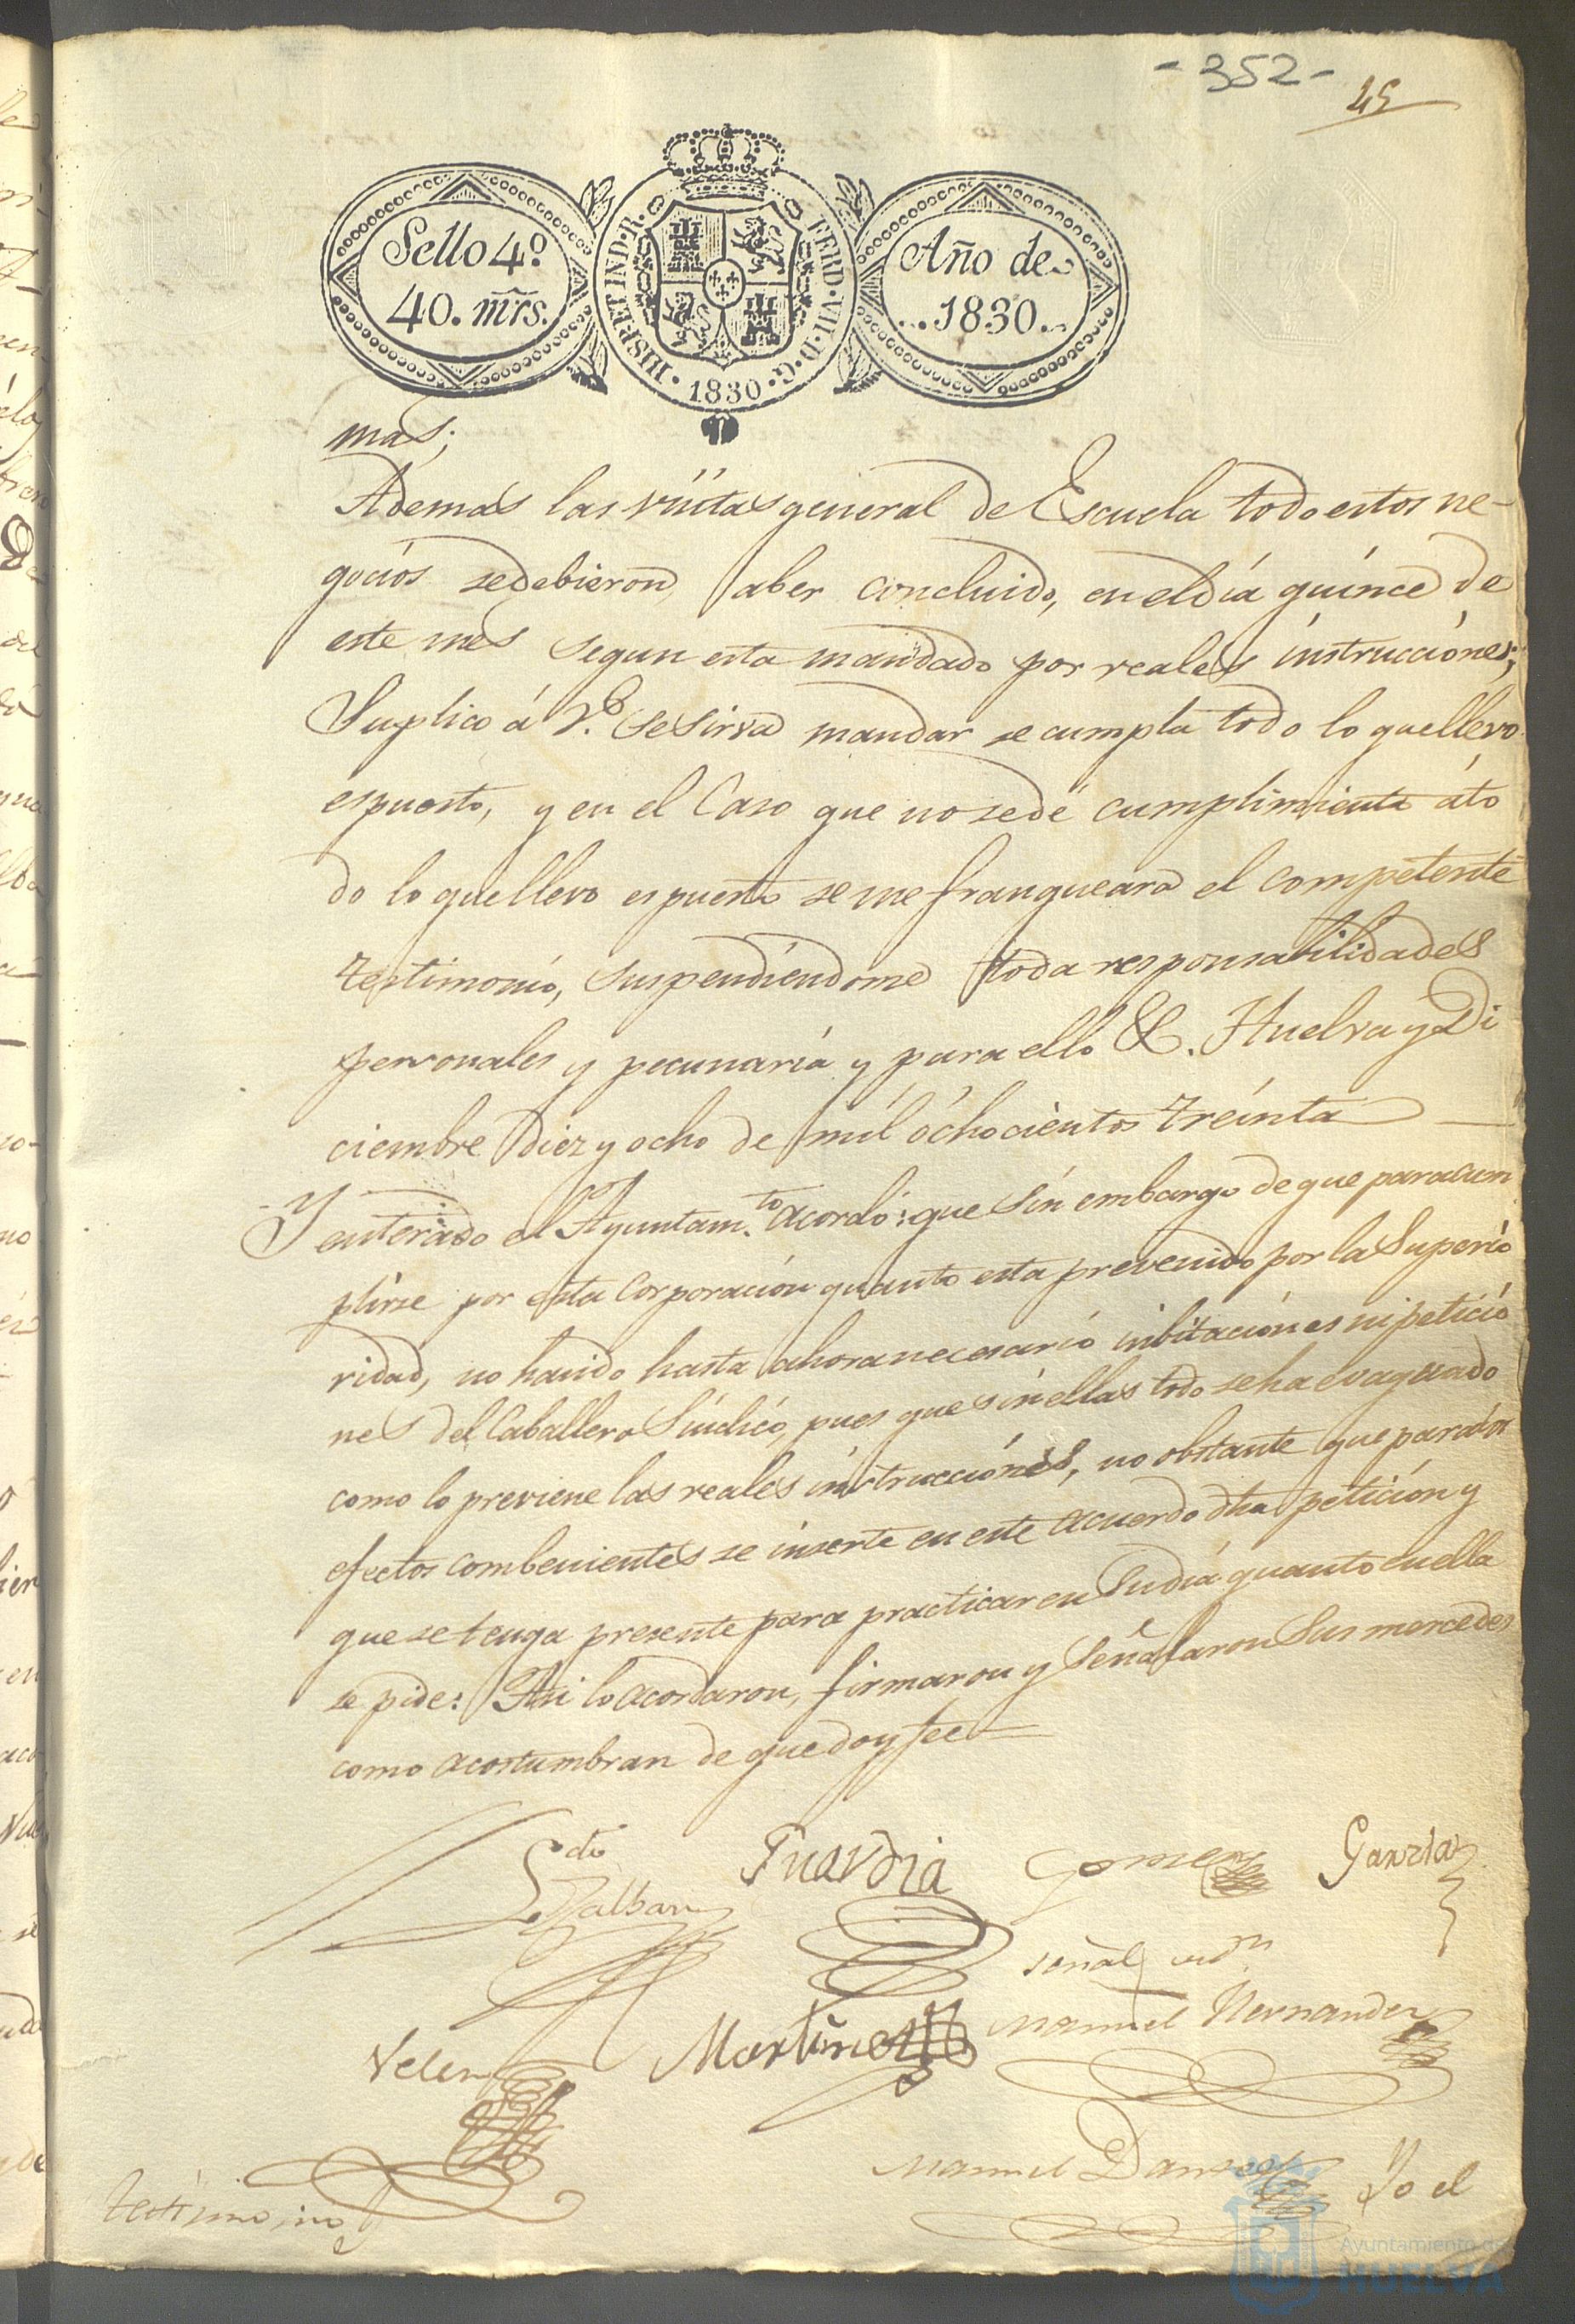 -352-
45
Sello 4º
40. mrs.
HISP. ET IND. R.
FERD. VII. D. G.
1830
Año de
1830.
mas;
Ademas las visitas general de Escuela todo estos ne-
gocios se debieron aber concluido, en el dia quince de
este mes segun esta mandado por reales instrucciones;
Suplico á V. se sirva mandar se cumpla todo lo que llevo
espuesto, y en el Caso que no se dé cumplimiento áto
do lo que llevo espuesto se me franqueara el competente
testimonio, suspendiendome toda responsabilidades
personales y pecunaria y para ello &. Huelva y Di
ciembre diez y ocho de mil ochocientos treinta
Y enterado el Ayuntam.to acordó: que sin embargo de que para cum
plirse por esta Corporacion quanto esta prevenido por la Superio
ridad, no havido hasta ahora necesario inbitaciones ni peticio
nes del Caballero Sindico, pues que sin ellas todo se ha evaquado
como lo previene las reales instrucciones, no obstante que para los
efectos combenientes se inserte en este acuerdo dha peticion y
que se tenga presente para practicar en su dia quanto en ella
se pide: Asi lo acordaron, firmaron y señalaron sus mercedes
como acostumbran de que doy fee
Ldo
Zalban
Guardia
Gomez
Garzia
señal
Velez
Martinez
Manuel Hernandez
Manuel
Yo el
testimonio
Ayuntamiento de
HUELVA